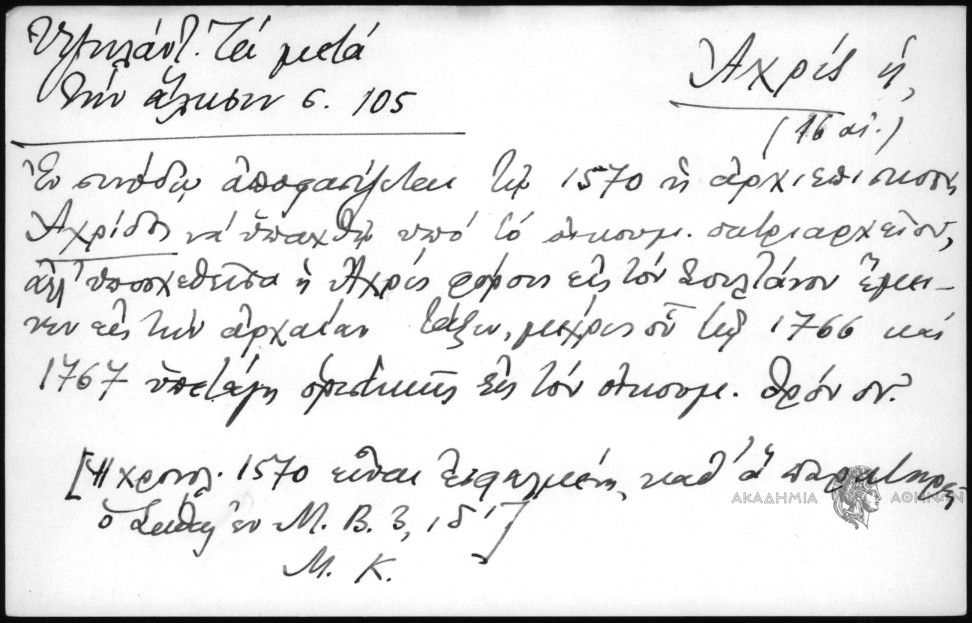 Ὑψηλάντ. Τὰ μετὰ
τὴν ἅλωσιν σ. 105
Ἀχρίς ἡ,
(16 αἰ.)
Ἐν συνόδῳ ἀποφασίζεται τῷ 1570 ἡ ἀρχιεπισκοπὴ
Ἀχρίδος νὰ ὑπαχθῇ ὑπὸ τὸ οἰκουμ. πατριαρχεῖον,
ἀλλ' ὑποσχεθεῖσα ἡ Ἀχρίς φόρους εἰς τὸν Σουλτάνον ἔμει-
νεν εἰς τὴν ἀρχαίαν τάξιν, μέχρις οὗ τῷ 1766 καὶ
1767 ὑπετάγη ὁριστικῶς εἰς τὸν οἰκουμ. θρόνον.
[Ἡ χρονολ. 1570 εἶναι ἐσφαλμένη, καθ' ἃ παρατηρεῖ
ὁ Σάθας ἐν Μ. Β. 3, ιδ']
Μ. Κ.
ΑΚΑΔΗΜΙΑ ΑΘΗΝΩΝ